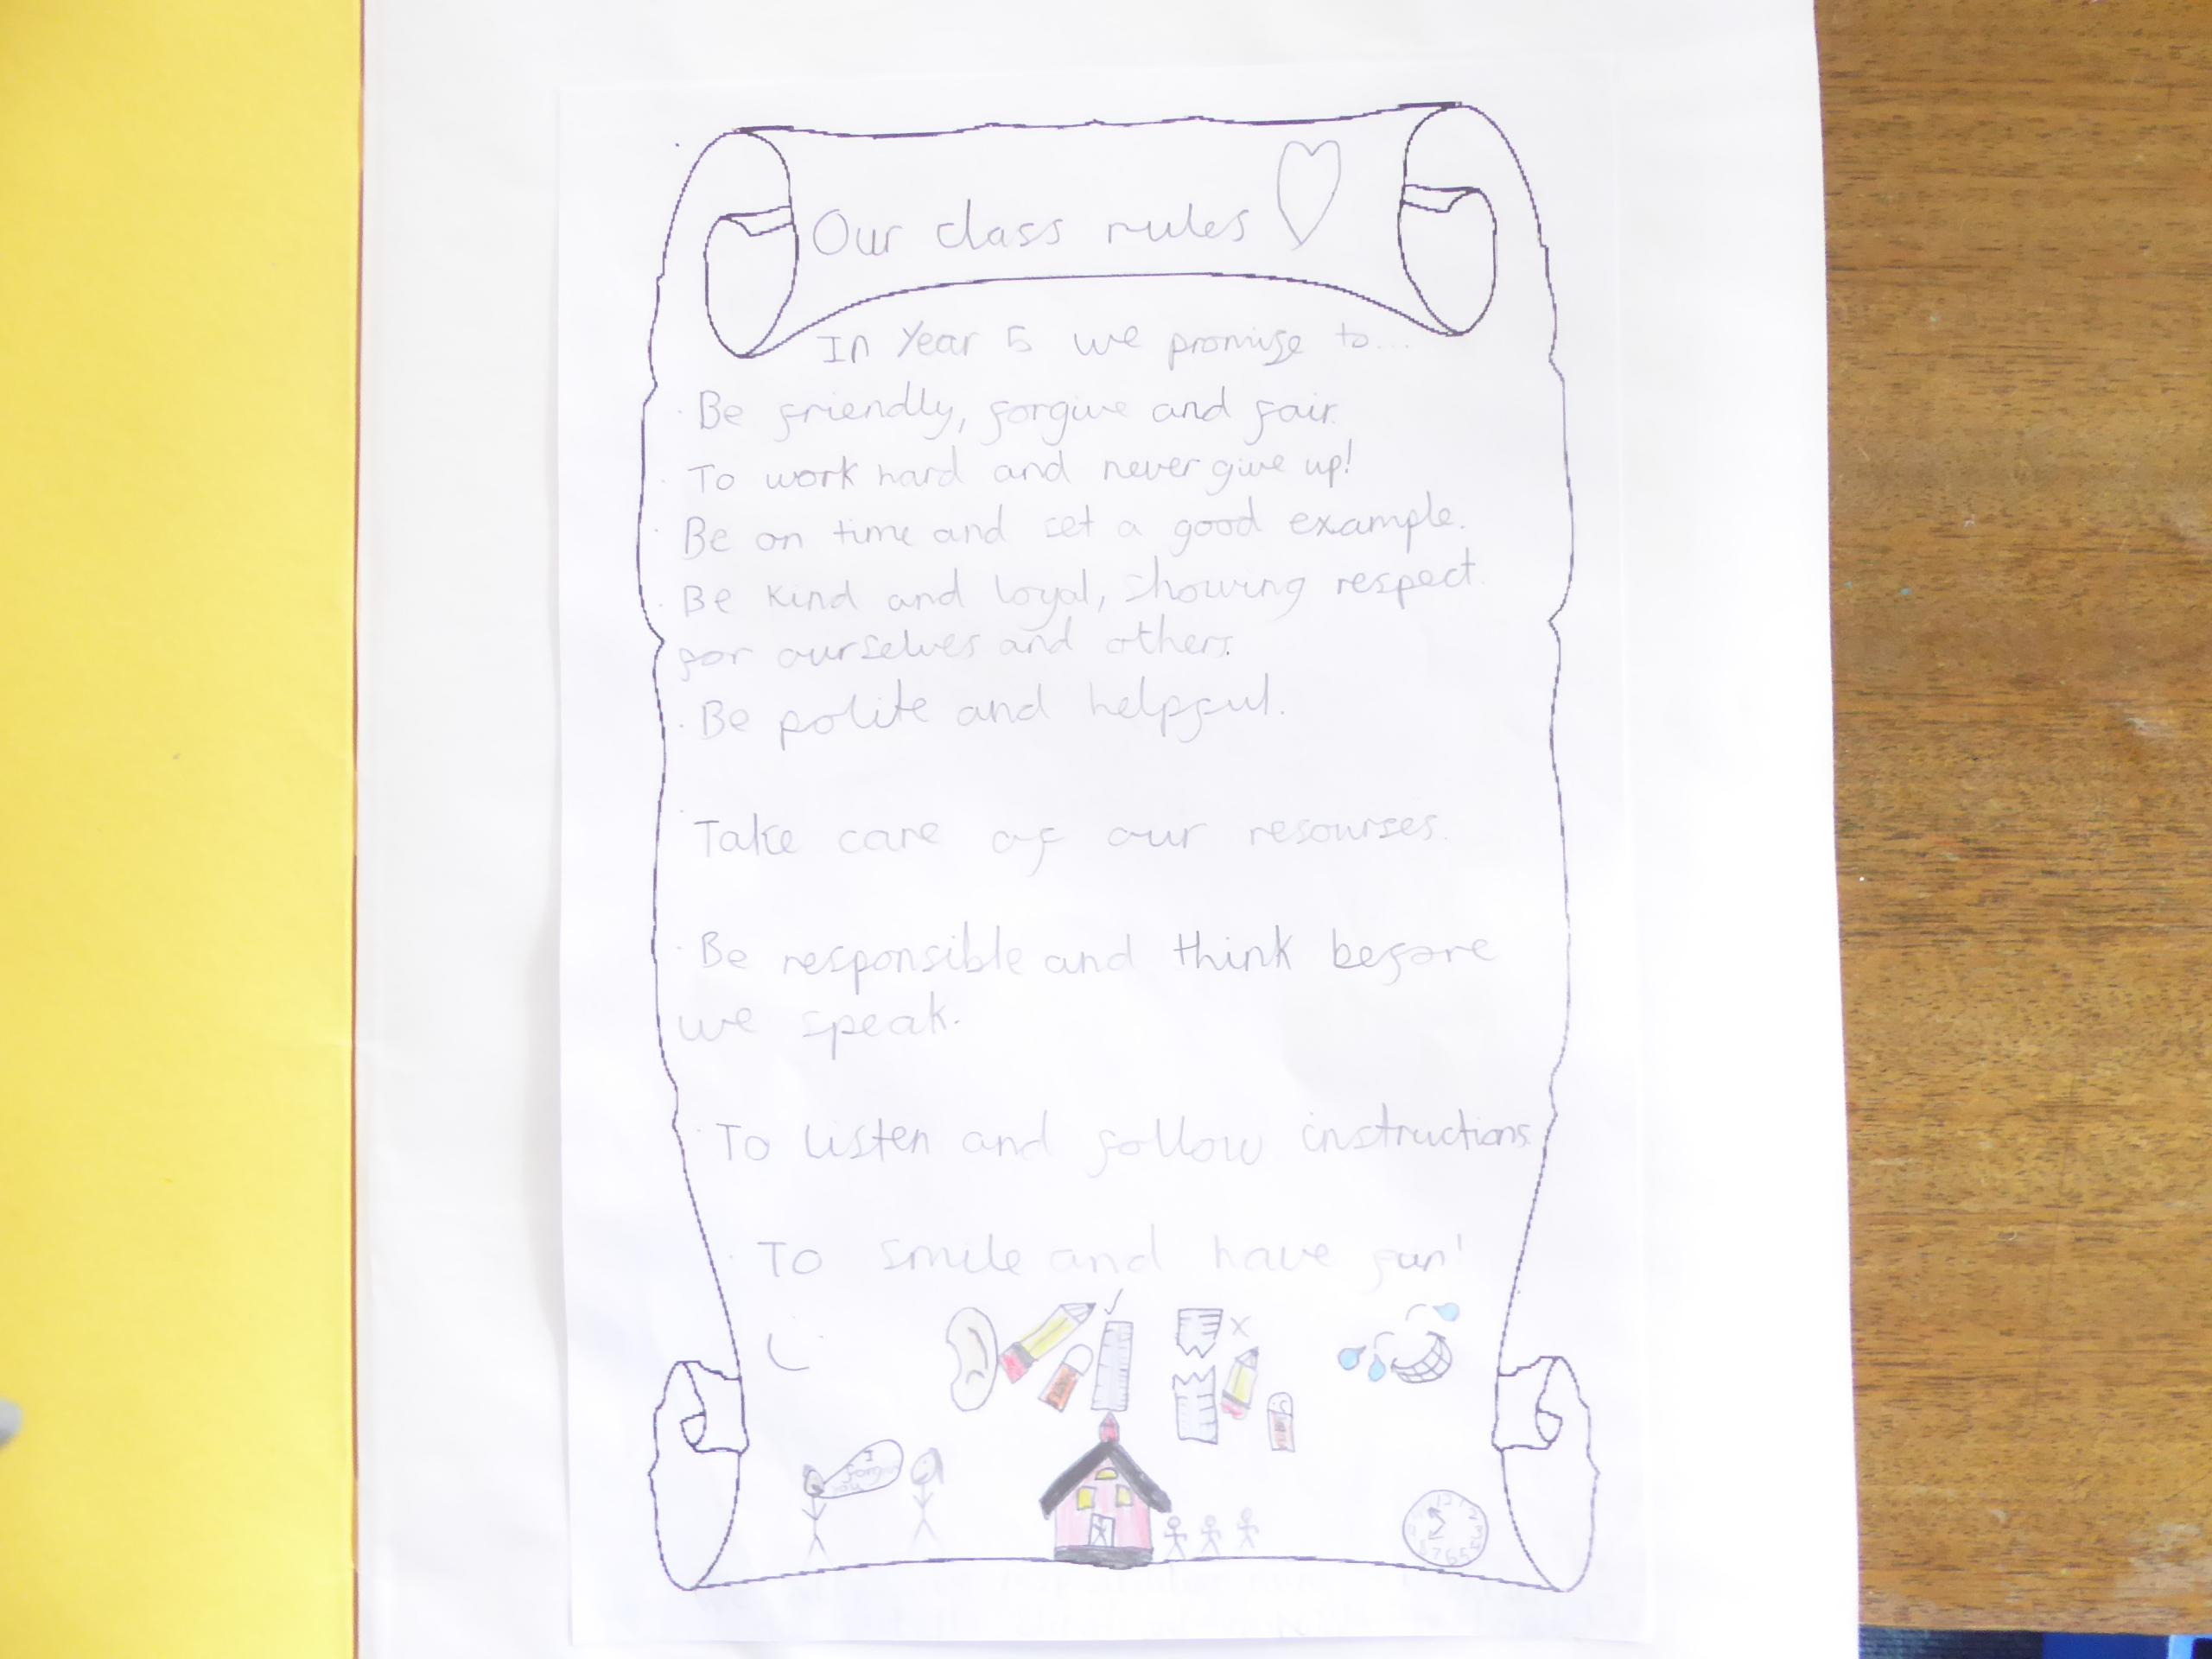 Our class rules
In Year 5 we promise to...
· Be friendly, forgive and fair.
· To work hard and never give up!
· Be on time and set a good example.
· Be kind and loyal, showing respect.
for ourselves and others.
· Be polite and helpful.
· Take care of our resourses.
· Be responsible and think before
we speak.
· To listen and follow instructions.
· To smile and have fun!
I
forgive
you